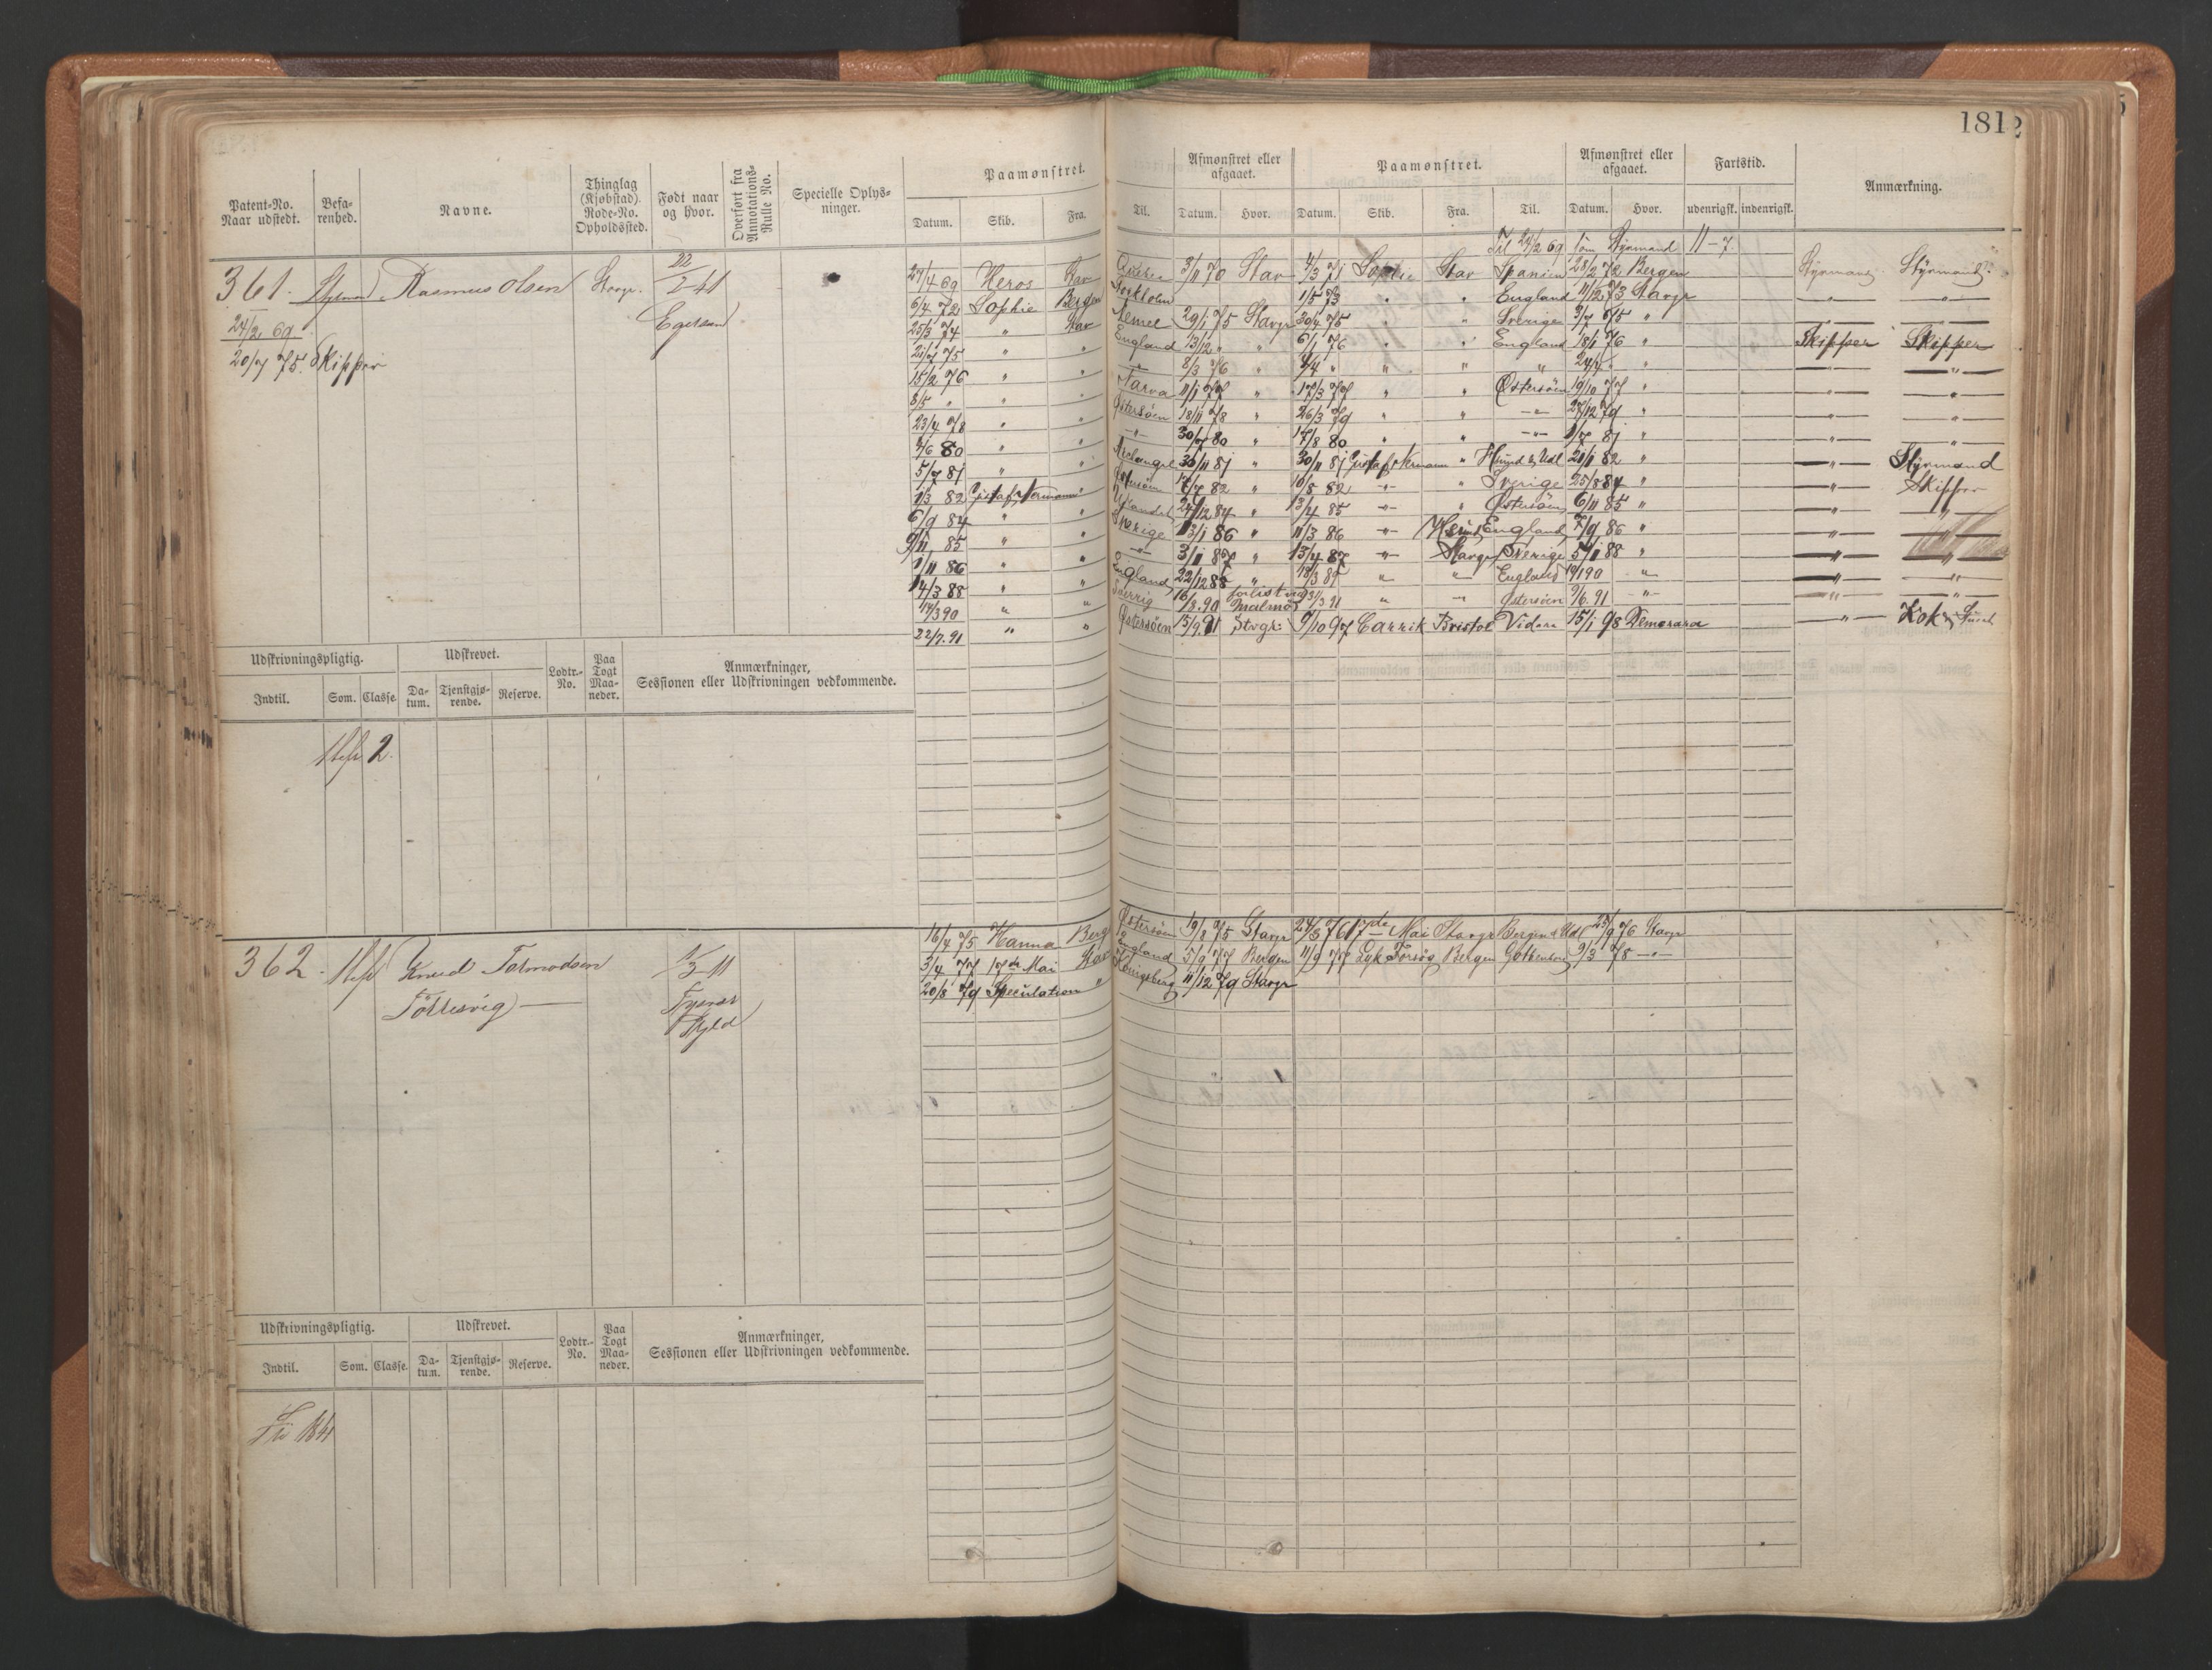 181
Patent-No. Naar udstedt. Befarenhed. Navne. Thinglag (Kjøbstad). Rode-No. Opholdssted. Født naar og hvor. Overført fra Annotations-Rulle No. Specielle Oplysninger. Paamønstret. Afmønstret eller afgaaet. Paamønstret. Afmønstret eller afgaaet. Fartstid. Anmærkning.
Datum. Skib. Fra. Til. Datum. Hvor. Datum. Skib. Fra. Til. Datum. Hvor. udenrigsk. indenrigsk.
Til 24/2 69 som Styrmand 11-7.
361. Styrmand Rasmus Olsen Stavgr. 22/2 41
24/2 69. Egersund
20/7 75. Skipper
27/4 69 Heros Stav 3/11 70 Stav 4/3 71 Sophie Stav Spanien 28/2 72 Bergen Styrmand Styrmand
6/4 72 Sophie Bergen Stokholm 1/5 73 " " England 11/12 73 Stavgr " "
25/3 74 " Stav Memel 29/1 75 Stavgr 30/4 75 " " Sverige 3/7 75 " " "
21/7 75 " " England 13/12 " " 6/1 76 " " England 18/1 76 " Skipper Skipper
15/2 76 " " " 8/3 76 " 4/4 " " " " 24/4 " " "
8/5 " " " Narva 11/1 77 " 17/3 77 " " Østersöen 19/10 77 " " "
23/4 78 " " Østersöen 18/11 78 " 26/3 79 " " " 27/12 79 " " "
4/6 80 " " " 30/7 80 " 17/8 80 " " " 1/7 81 " " "
5/7 81 " " Archangel 30/11 81 " 30/11 81 Gustaf Hermann " Hsund & Udl 21/1 82 " " Styrmand
1/3 82 Gustaf Hermann " Østersöen 17/7 82 " 10/8 82 " " Sverige 25/8 84 " " Skipper
6/9 84 " " Uplandet 24/12 84 " 13/4 85 " " Østersöen 6/11 85 " " "
9/11 85 " " Sverige 13/1 86 " 11/3 86 " Hsund England 7/9 86 " " "
1/11 86 " " " 3/11 87 " 13/4 87 " Stavgr Sverige 5/1 88 " " "
14/3 88 " " England 22/12 88 " 13/3 89 " " England 19/1 90 " " "
14/3 90 " " Sverrig 16/12 90 forlist ved Malmø 31/3 91 " " Østersöen 9/6 91 " " "
22/7 91 " " Østersöen 15/9 91 Stvgr: 9/10 97 Carrik Bristol Videre 15/1 98 Demerara " Kok &
Udskrivningspligtig. Udskrevet. Lodtr.-No. Paa Togt Maaneder. Anmærkninger, Sessionen eller Udskrivningen vedkommende.
Indtil. Som. Classe. Datum. Tjenstgjørende. Reserve.
2.
362. Knud Tormodsen 1/3 11
Töttesvig
Tysvær
Skjold
16/4 75 Hanna Berg Østersöen 19/8 75 Stavgr 24/3 76 17de Mai Stavgr Bergen & Udl 25/9 76 Stavgr
3/4 77 17de Mai Stav England 5/9 77 Bergen 11/9 77 Lyk Forsög Bergen Gottenborg 9/3 78 "
20/8 79 Speculation " Königsberg 11/12 79 Stavgr
Udskrivningspligtig. Udskrevet. Lodtr.-No. Paa Togt Maaneder. Anmærkninger, Sessionen eller Udskrivningen vedkommende.
Indtil. Som. Classe. Datum. Tjenstgjørende. Reserve.
1841